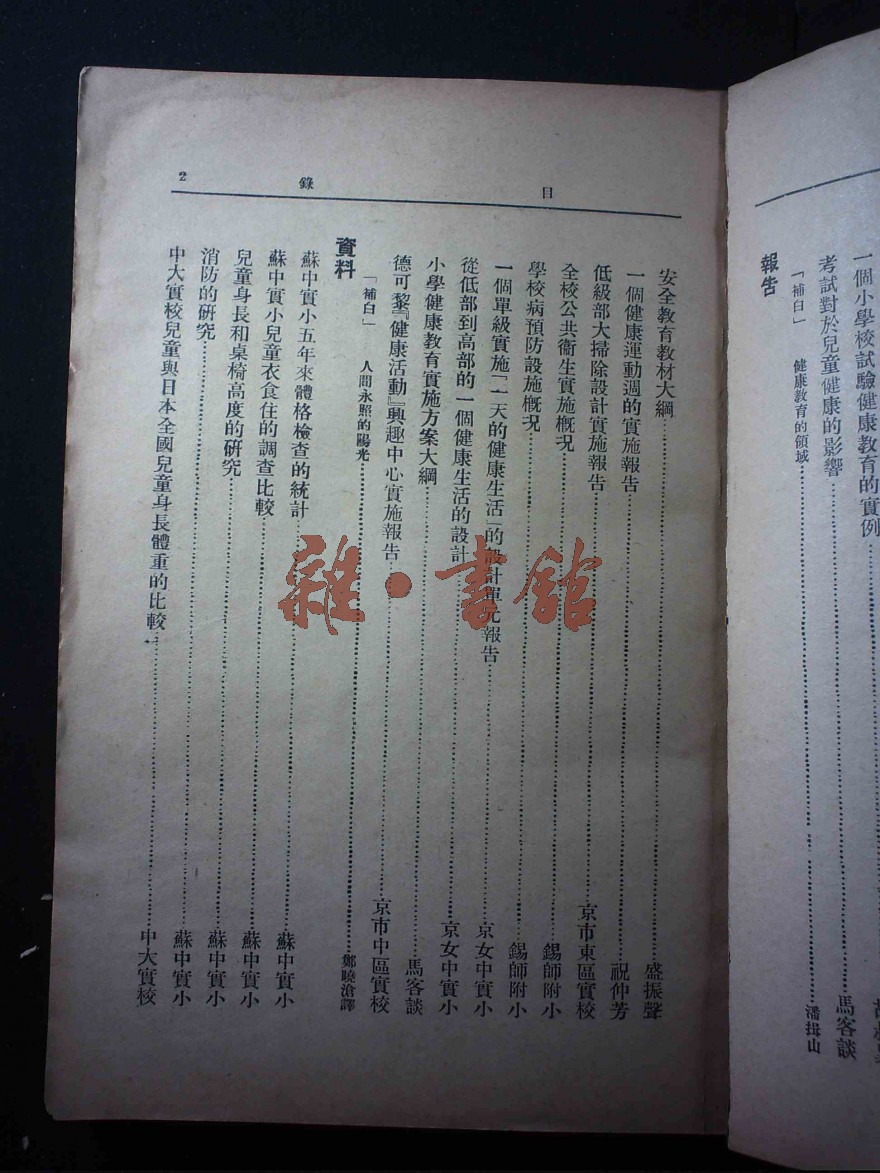 一個小學校試驗健康教育的實例
考試對於兒童健康的影響……馬客談
「補白」 健康教育的領域……潘揖山
報告
目錄 2
安全教育教材大綱……盛振聲
一個健康運動週的實施報告……祝仲芳
低級部大掃除設計實施報告……京市東區實校
全校公共衞生實施概况……錫師附小
學校病預防設施概况……錫師附小
一個單級實施「一天的健康生活」的設計單元報告……京女中實小
從低部到高部的一個健康生活的設計……京女中實小
小學健康教育實施方案大綱……馬客談
德可黎『健康活動』興趣中心實施報告……京市中區實校
「補白」 人間永照的陽光……鄭曉滄譯
資料
蘇中實小五年來體格檢查的統計……蘇中實小
蘇中實小兒童衣食住的調查比較……蘇中實小
兒童身長和桌椅高度的研究……蘇中實小
消防的研究……蘇中實小
中大實校兒童與日本全國兒童身長體重的比較……中大實校
雜·書館